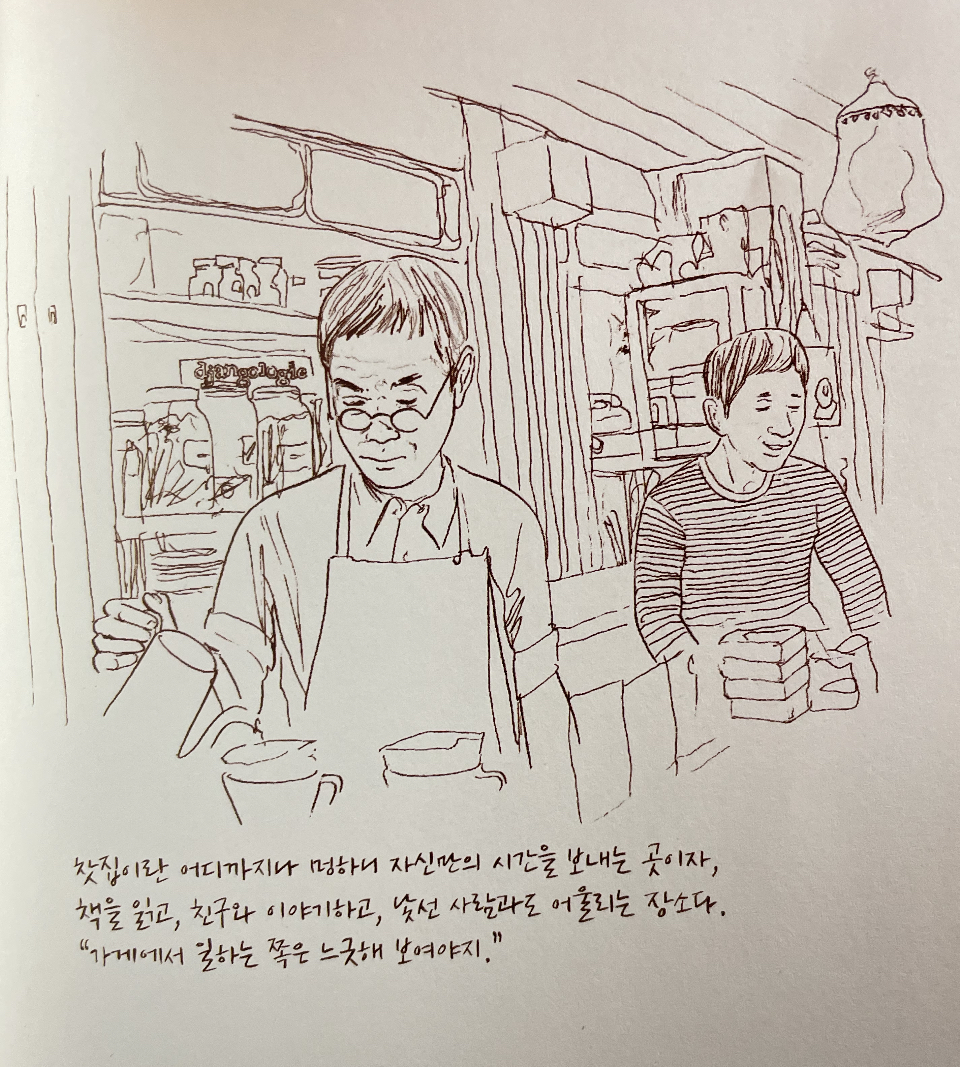 djangologie
찻집이란 어디까지나 멍하니 자신만의 시간을 보내는 곳이자,
책을 읽고, 친구와 이야기하고, 낯선 사람과도 어울리는 장소다.
“가게에서 일하는 쪽은 느긋해 보여야지.”